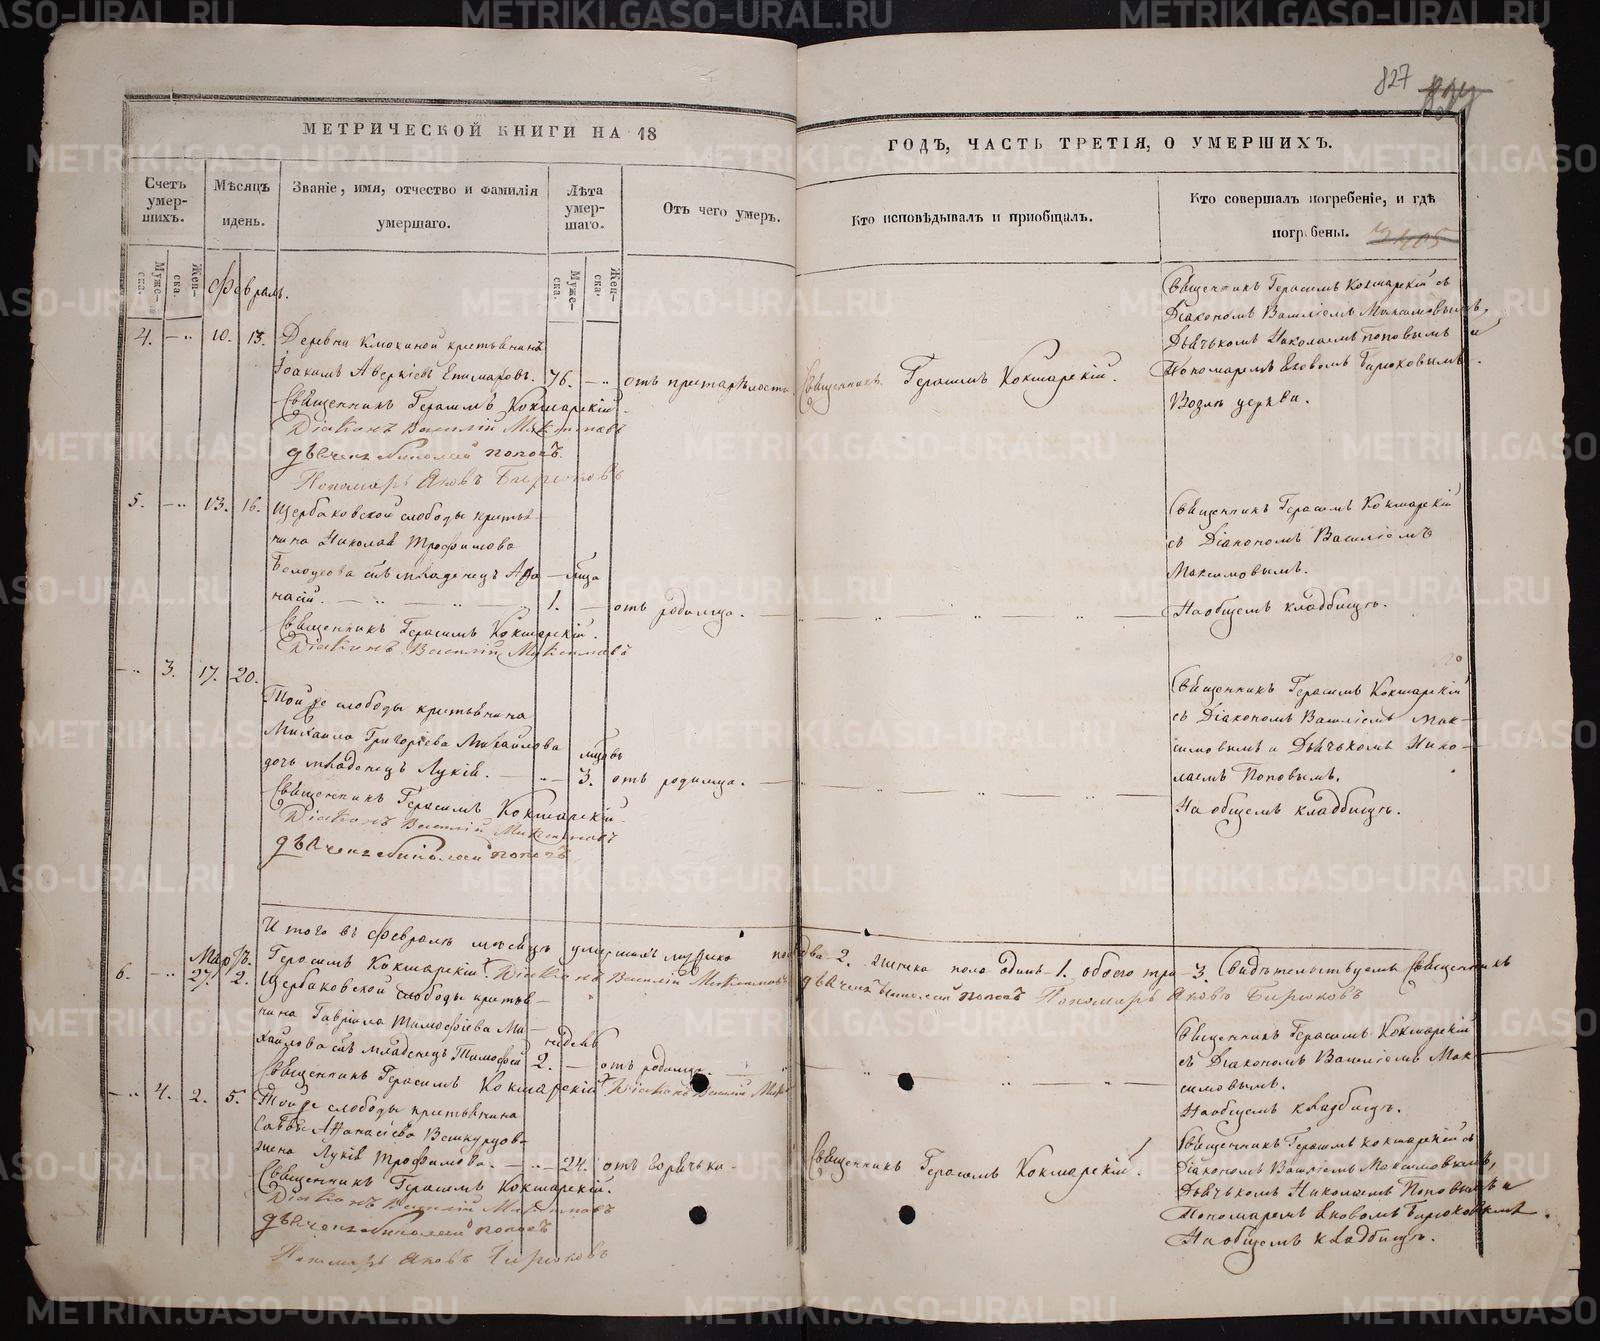 827
МЕТРИЧЕСКОЙ КНИГИ НА 18
ГОДЪ, ЧАСТЬ ТРЕТІЯ, О УМЕРШИХЪ.
Счетъ умер-шихъ.
Мѣсяцъ идень.
Званіе, имя, отчество и фамилія умершаго.
Лѣта умер-шаго.
Отъ чего умеръ.
Кто исповѣдывалъ и пріобщалъ.
Кто совершалъ погребеніе, и гдѣ погребены.
Муже-ска.
Жен-ска.
Муже-ска.
Жен-ска.
Февраль.
4. 10. 13. Деревни Клюкиной крестьянинъ
Іоакимъ Аверкіевъ Епимаховъ. 76. отъ престарѣлости
Священникъ Герасимъ Кокшарскій.
Діаконъ Василій Максимовъ
дьячекъ Николай Поповъ
Пономарь Яковъ Бирюковъ
Священникъ Герасимъ Кокшарскій.
Священникъ Герасимъ Кокшарскій съ
Діакономъ Василіемъ Максимовымъ,
Дьячькомъ Николаемъ Поповымъ и
Пономаремъ Яковомъ Бирюковымъ.
Возлѣ церкви.
5. 13. 16. Щербаковской слободы крестья-
нина Николая Трофимова
сынъ младенецъ Афа-
насій. 1. отъ родимца.
Священникъ Герасимъ Кокшарскій.
Діаконъ Василій Максимовъ
Священникъ Герасимъ Кокшарскій
съ Діакономъ Василіемъ
Максимовымъ.
На общемъ кладбищѣ.
3. 17. 20.
Той же слободы крестьянина
Михаила Григоріева Михайлова
дочь младенецъ Лукія. 3. отъ родимца.
Священникъ Герасимъ Кокшарскій
Діаконъ Василій Максимовъ
дьячекъ Николай Поповъ
Священникъ Герасимъ Кокшарскій
съ Діакономъ Василіемъ Мак-
симовымъ и Дьячькомъ Нико-
лаемъ Поповымъ.
На общемъ кладбищѣ.
Итого въ Февралѣ мѣсяцѣ умершихъ мужеска пола два-2. женска пола одинъ-1. обоего три-3. Свидѣтельствуемъ Священникъ
Герасимъ Кокшарскій. Діаконъ Василій Максимовъ дьячекъ Николай Поповъ Пономарь Яковъ Бирюковъ
Мартъ.
6. 27. 2. Щербаковской слободы крестья-
нина Гавріила Тимофѣева Ми-
хайлова сынъ младенецъ Тимофей 2. недель отъ родимца.
Священникъ Герасимъ Кокшарскій Діаконъ Василій
Священникъ Герасимъ Кокшарскій
съ Діакономъ Василіемъ Мак-
симовымъ.
На общемъ кладбищѣ.
4. 2. 5. Той же слободы крестьянина
Савы Афанасіева
жена Лукія Трофимова. 24. отъ горячьки.
Священникъ Герасимъ Кокшарскій.
Діаконъ Василій Максимовъ
дьячекъ Николай Поповъ
Пономарь Яковъ Бирюковъ
Священникъ Герасимъ Кокшарскій.
Священникъ Герасимъ Кокшарскій съ
Діакономъ Василіемъ Максимовымъ,
Дьячькомъ Николаемъ Поповымъ и
Пономаремъ Яковомъ Бирюковымъ.
На общемъ кладбищѣ.
METRIKI.GASO-URAL.RU